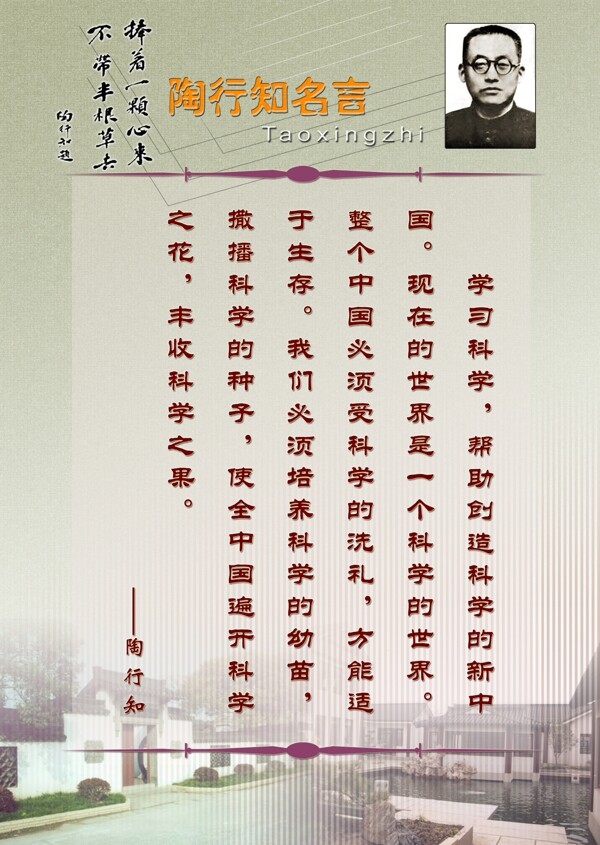 捧着一颗心来
不带半根草去
陶行知题
陶行知名言
Taoxingzhi
学习科学，帮助创造科学的新中
国。现在的世界是一个科学的世界。
整个中国必须受科学的洗礼，方能适
于生存。我们必须培养科学的幼苗，
撒播科学的种子，使全中国遍开科学
之花，丰收科学之果。
——陶行知